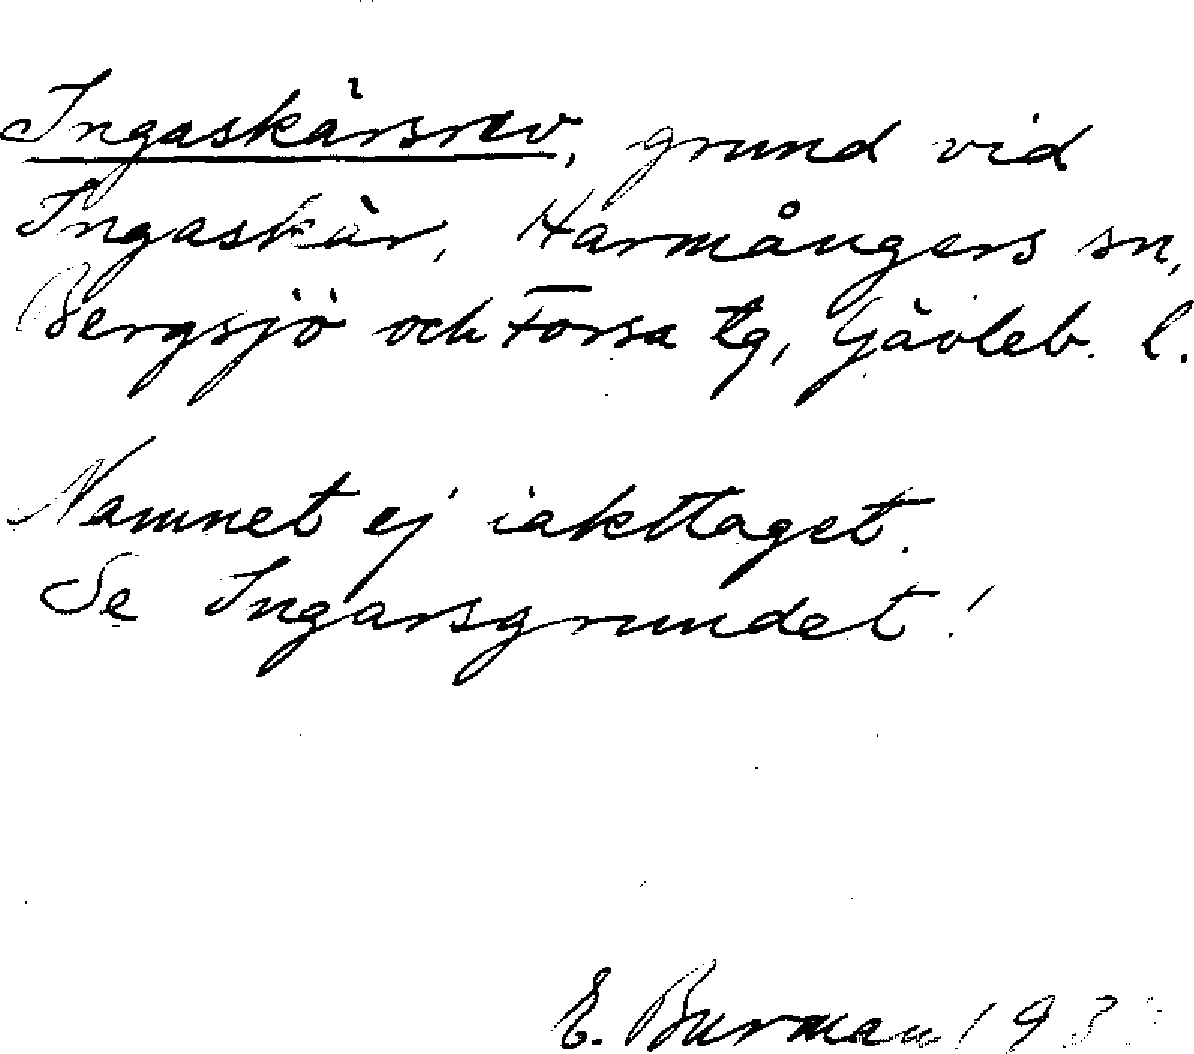 Ingaskärsrev, grund vid
Ingaskär, Harmångers sn,
Bergsjö och Forsa tg, Gävleb. l.
Namnet ej iakttaget.
Se Ingarsgrundet!
E. Burman